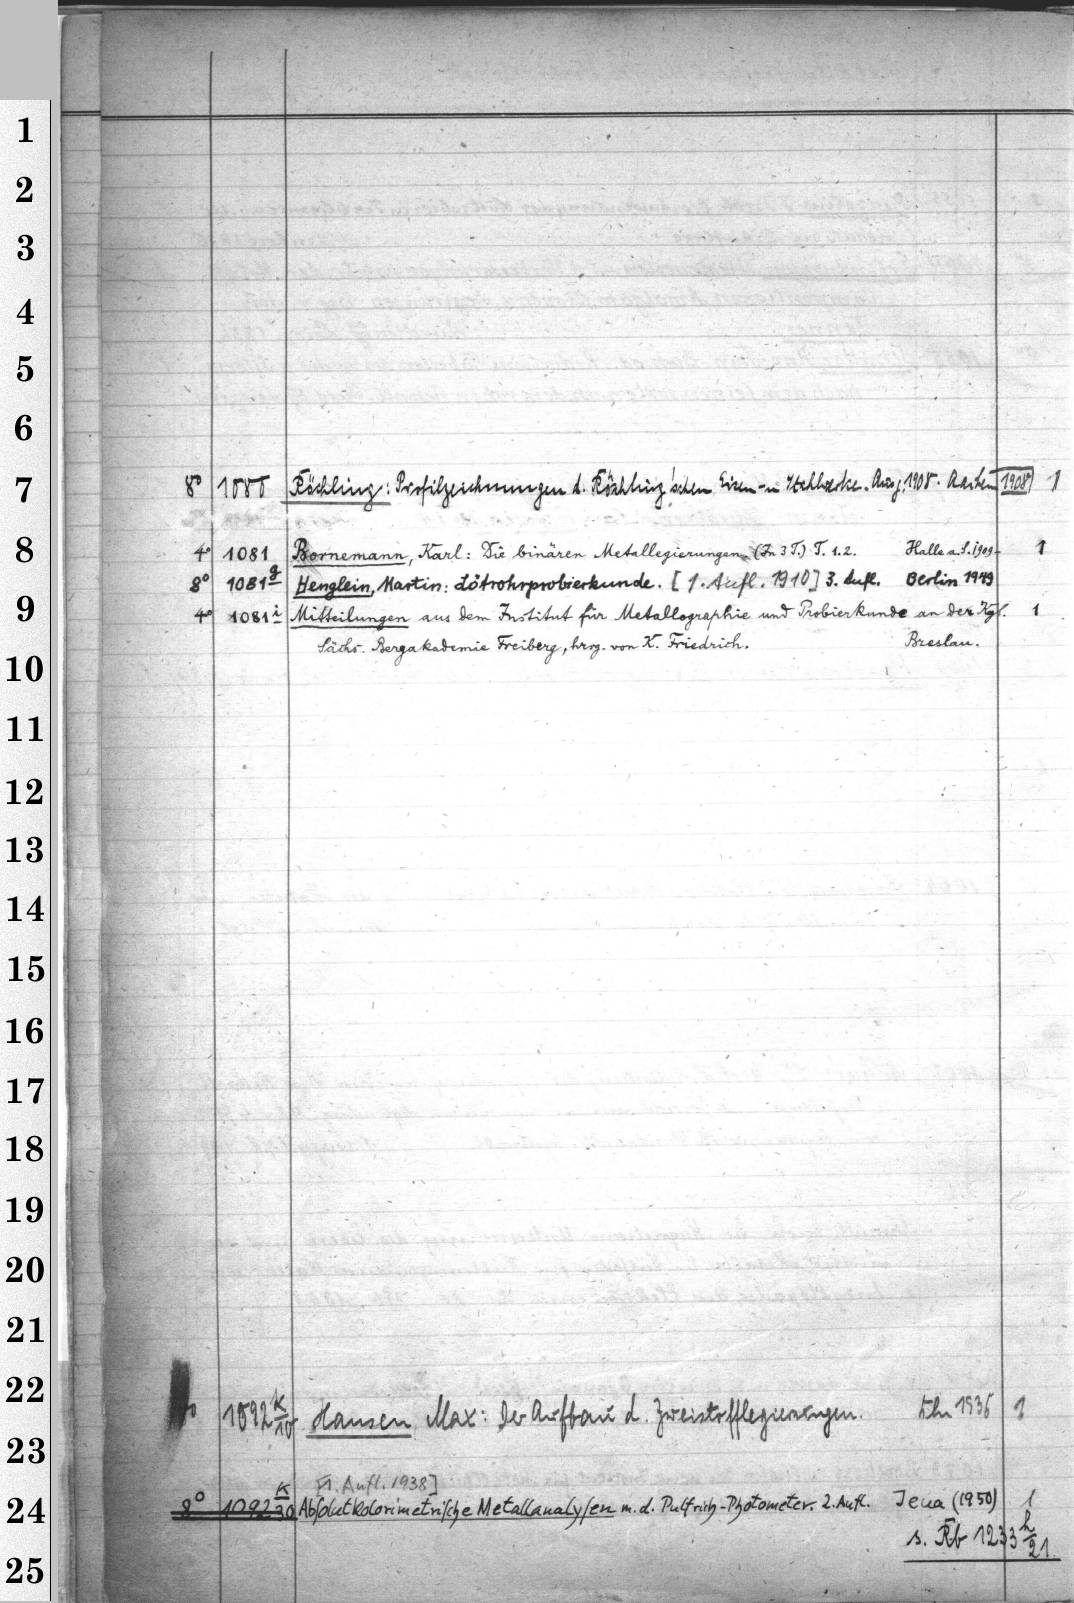 1
2
3
4
5
6
7 8° 1080 Röchling: Profilzeichnungen d. Röchling'schen Eisen- u Stahlwerke. Ausg. 1908. Aachen 1908 1
8 4° 1081 Bornemann, Karl: Die binären Metallegierungen. (In 3 T.) T. 1.2. Halle a. S. 1909- 1
8° 1081 g Henglein, Martin: Lötrohrprobierkunde. [1. Aufl. 1910] 3. Aufl. Berlin 1949
9 4° 1081 i Mitteilungen aus dem Institut für Metallographie und Probierkunde an der Kgl. 1
Sächs. Bergakademie Freiberg, hrsg. von K. Friedrich. Breslau.
10
11
12
13
14
15
16
17
18
19
20
21
22 1092 K/10 Hansen, Max: Der Aufbau d. Zweistofflegierungen. Bln 1936 1
23
[1. Aufl. 1938]
24 8° 1092 K/30 Absolutkolorimetrische Metallanalysen m. d. Pulfrich-Photometer. 2. Aufl. Jena (1950) 1
s. Rb 1233 k/21.
25